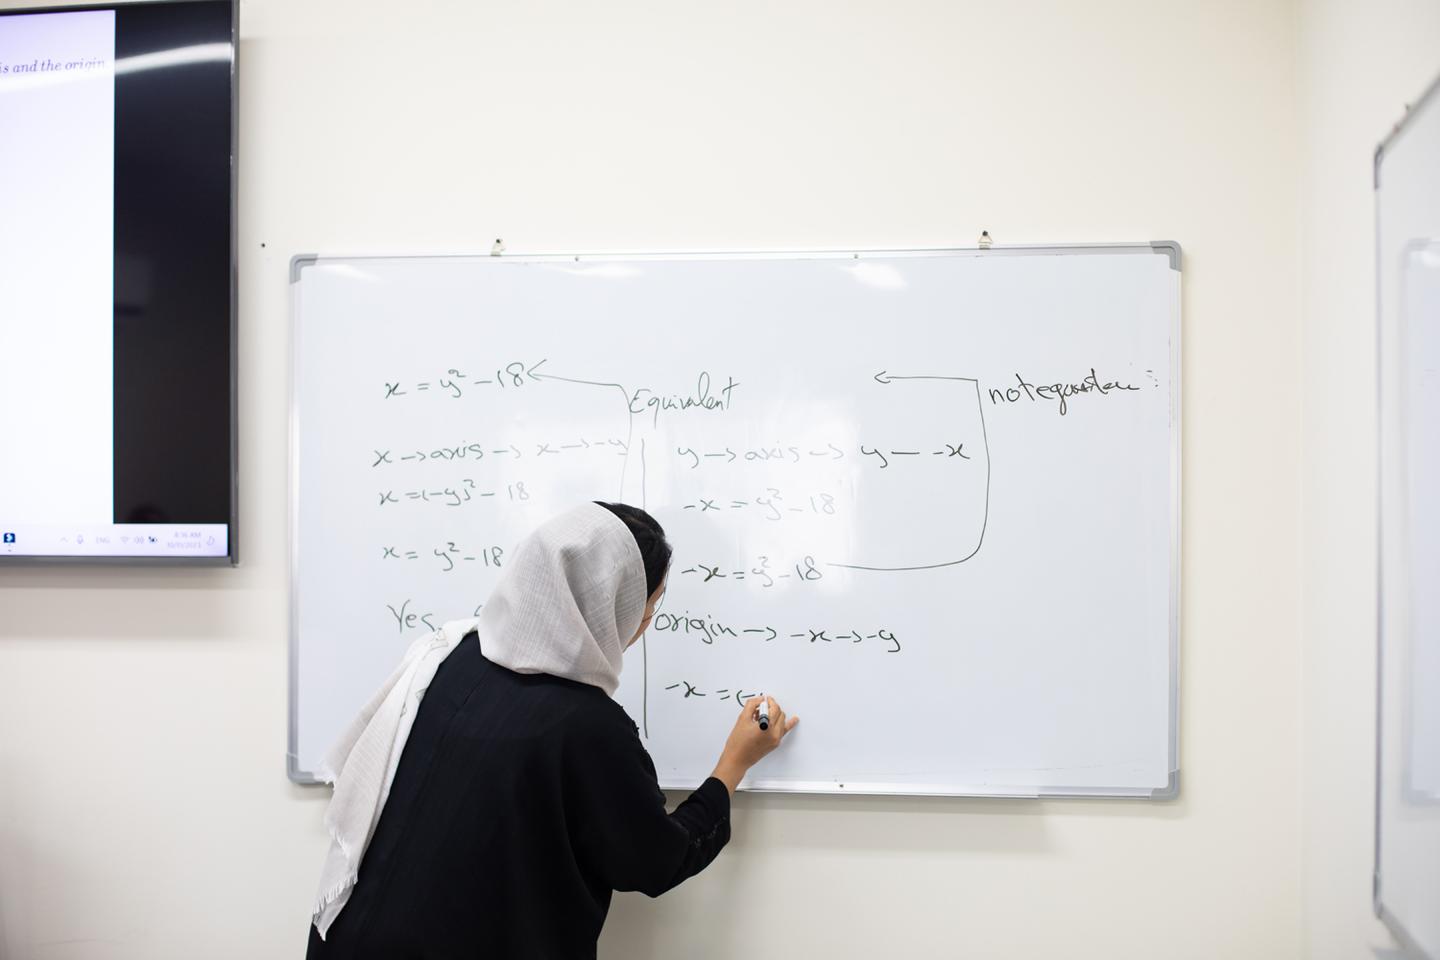 is and the origin.
ENG
8:16 AM
x = y² - 18
Equivalent
x → axis → x → -y
x = (-y)² - 18
x = y² - 18
Yes.
y → axis → y — -x
-x = y² - 18
-x = y² - 18
origin → -x → -y
-x = (-